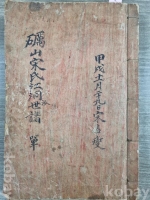 甲戌十一月十九日宋
礪山宋氏仁洞世譜 單
kobay